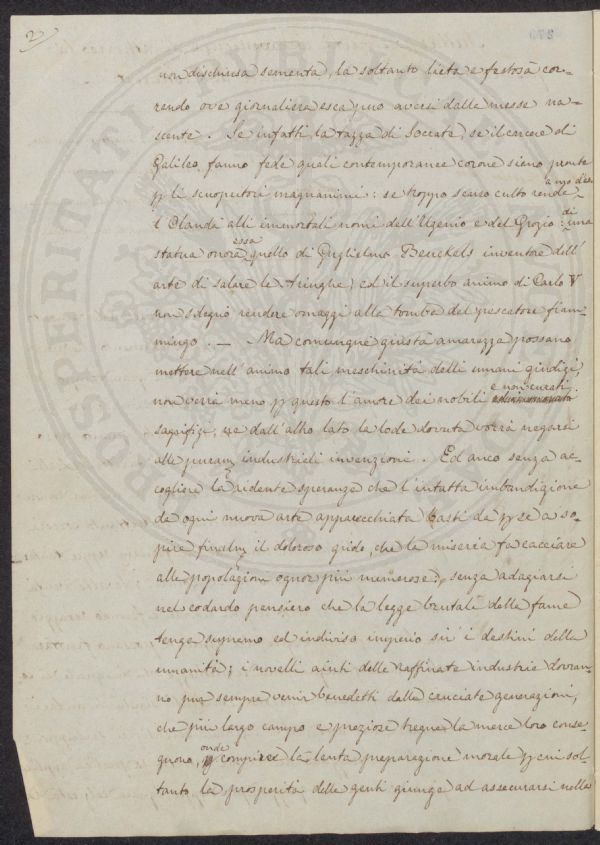 2
non dischiusa sementa, la soltanto lieta e festosa cor-
rendo ove giornaliera esca può aversi dalla messe na-
scente. Se infatti la tazza di Socrate, se il carcere di
Galileo, fanno fede quali contemporanee corone sieno pronte
pli scuopritori magnanimi: se troppo senso culto rende
l'Olanda alli immortali nomi dell'Ugenio e del Grozio: di una
statua onora essa quello di Guglielmo Beuckels inventore dell'
arte di salare le Aringhe; ed il superbo animo di Carlo V
non sdegnò rendere omaggi alla tomba del pescatore fiam-
mingo. — Ma comunque giusta amarezza possano
mettere nell'animo tali meschinità delli umani giudizi,
non verrà meno p questo l'amore dei nobili e non curati
sagrifizi, ne dall'altro lato la lode dovuta vorrà negarsi
alle puram industriali invenzioni. Ed anco senza ac-
cogliere la ridente speranza che l'intatta imbandigione
da ogni nuova arte apparecchiata basti da p se a so-
pire finalm il doloroso grido, che la miseria fa cacciare
alle popolazioni ognor più numerose; senza adagiarsi
nel codardo pensiero che la legge brutale della fame
tenga supremo ed indiviso imperio su i destini della
umanità; i novelli ajuti delle raffinate industrie dovran-
no pur sempre venir benedetti dalle cruciate generazioni,
che più largo campo e preziosa tregua la mercè loro conse-
guono, onde compiere la lenta preparazione morale p cui sol-
tanto la prosperità delle genti giunge ad assecurarsi nella